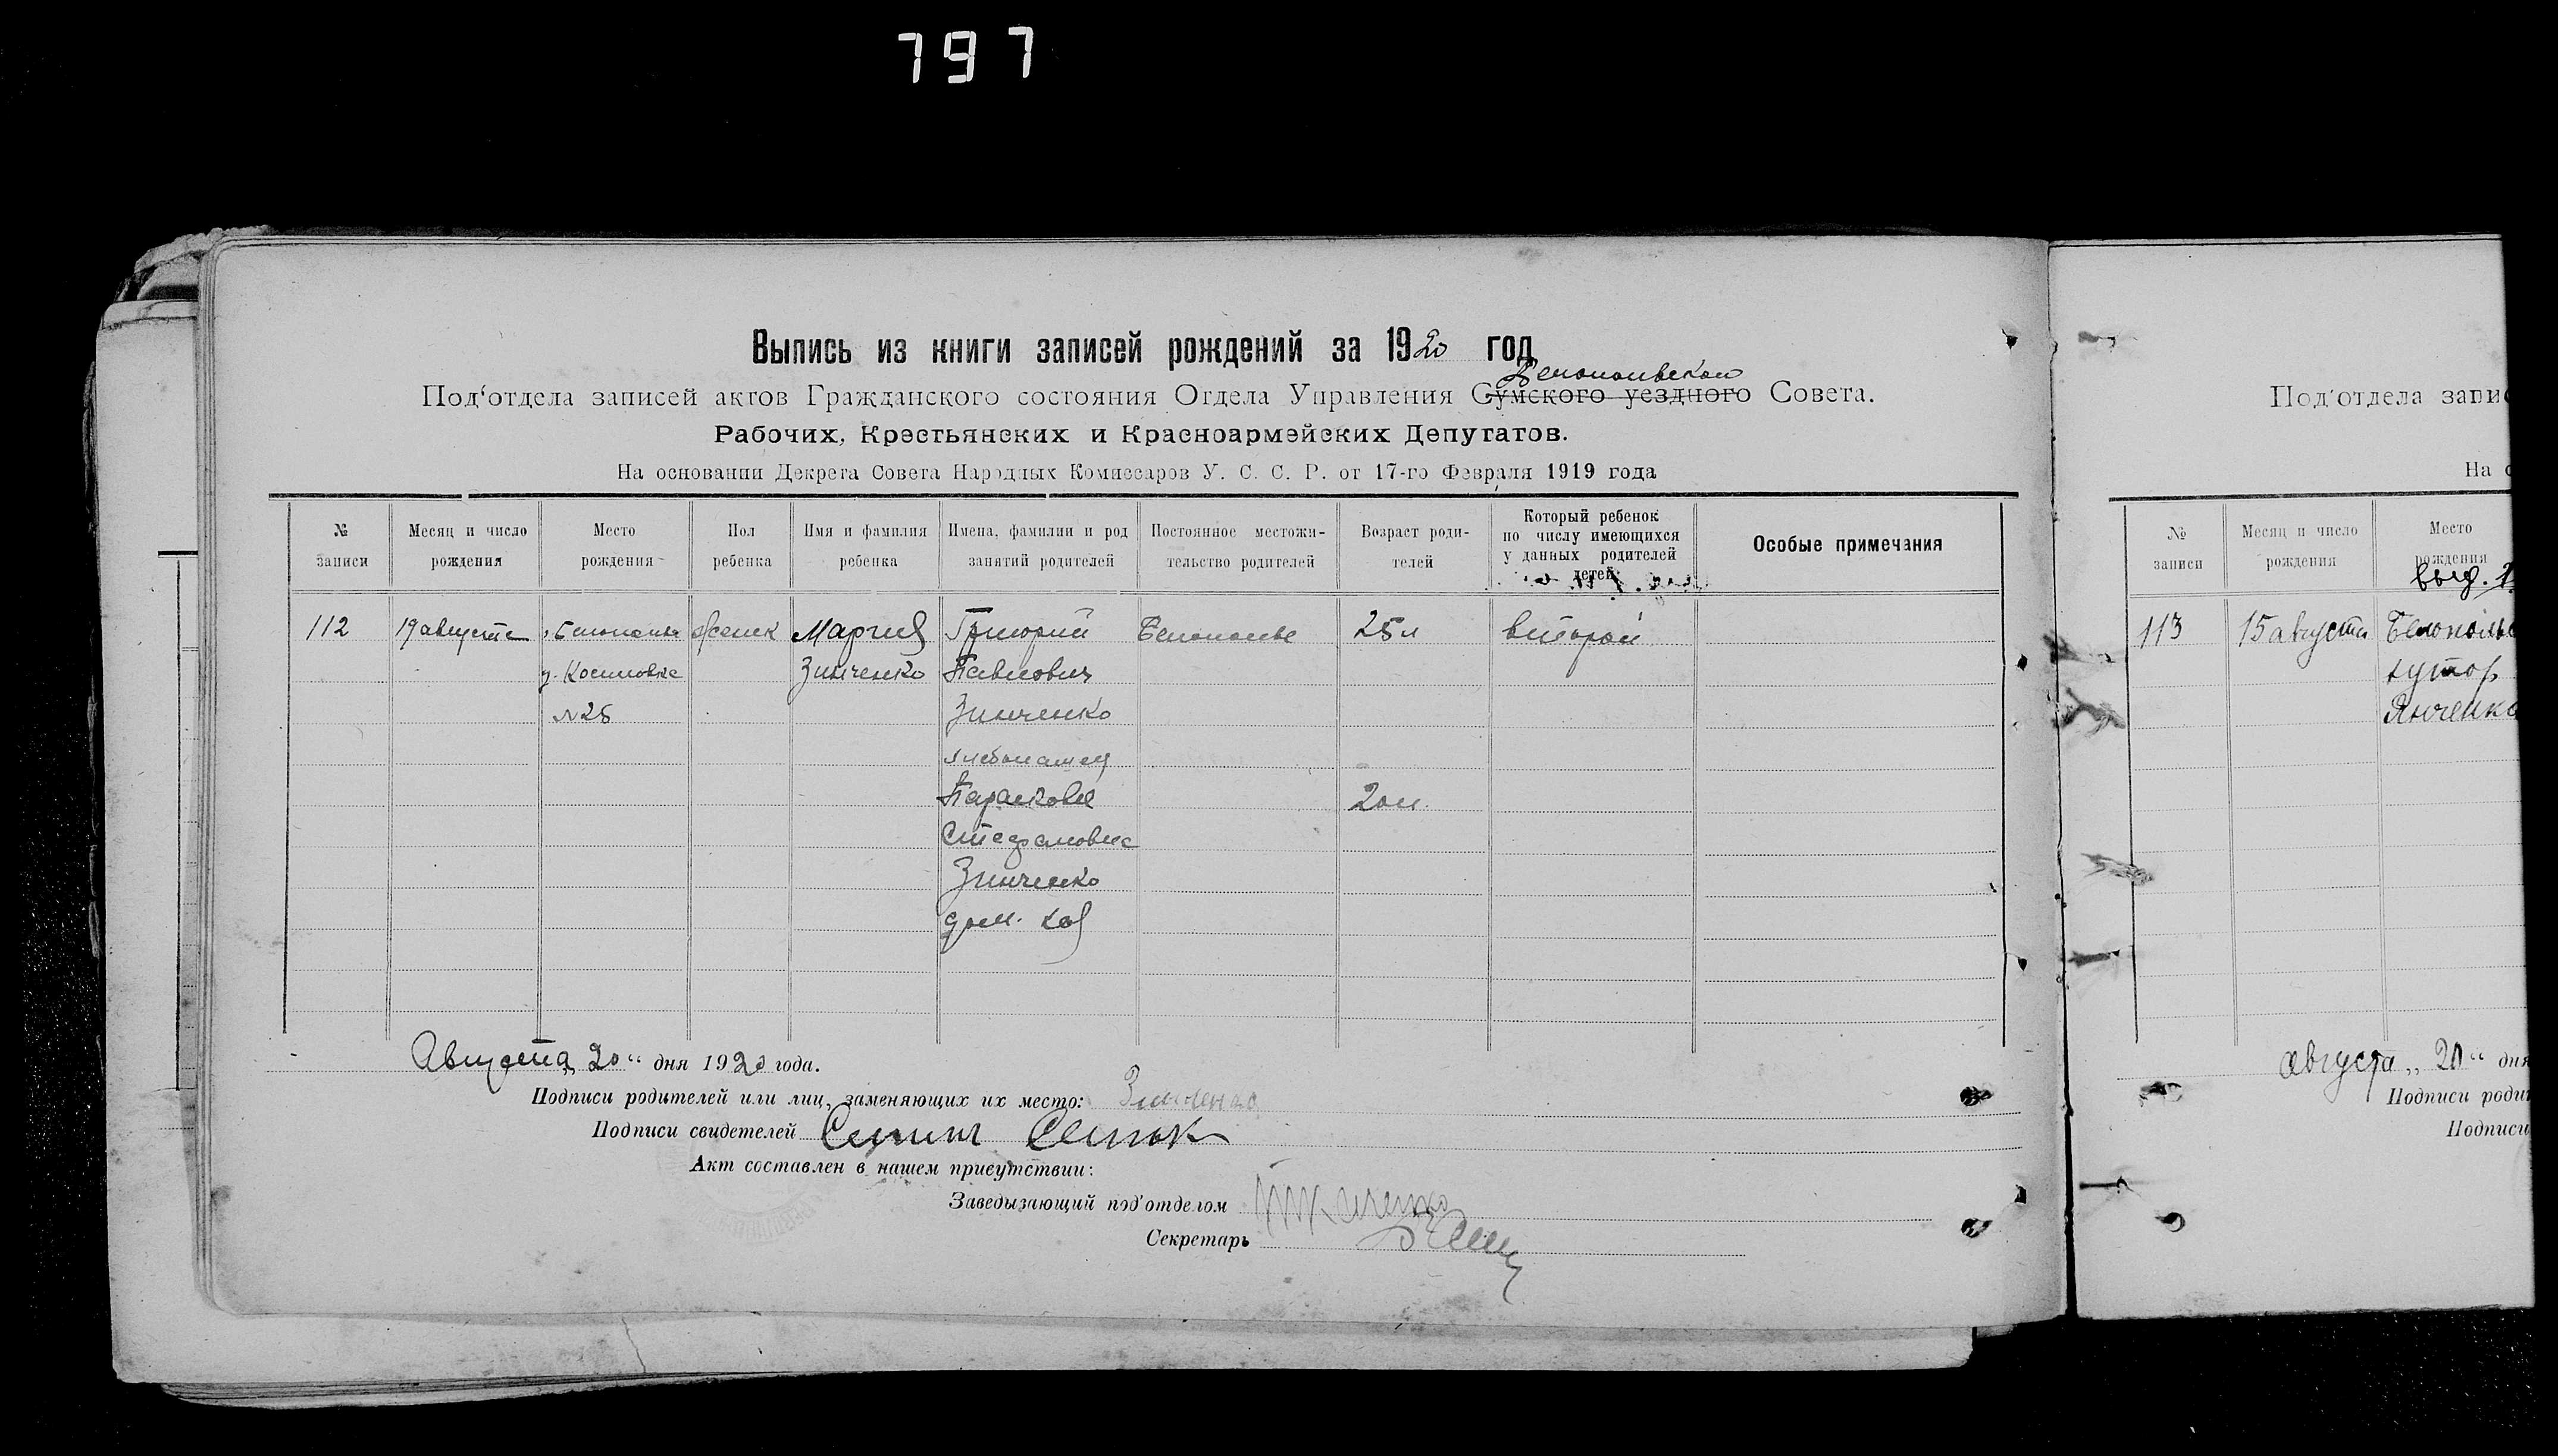 797
Выпись из книги записей рождений за 1920 год
Белопольского
Под‘отдела записей актов Гражданского состояния Отдела Управления Сумского уездного Совета.
Рабочих, Крестьянских и Красноармейских Депутатов.
На основании Декрета Совета Народных Комиссаров У. С. С. Р. от 17-го Февраля 1919 года
№ записи
Месяц и число рождения
Место рождения
Пол ребенка
Имя и фамилия ребенка
Имена, фамилии и род занятий родителей
Постоянное местожительство родителей
Возраст родителей
Который ребенок по числу имеющихся у данных родителей детей
Особые примечания
112 19 августа Белополье женск Мария Григорий Белополье 25 л второй
Зинченко Павлович
№ 25 Зинченко
хлебопашец
Парасковея 20 л.
Стефановна
Зинченко
дом. хоз
Августа „20“ дня 1920 года.
Подписи родителей или лиц, заменяющих их место: Зинченко
Подписи свидетелей
Акт составлен в нашем присутствии:
Заведызающий под'отделом
Секретарь
Под'отдела запис
На о
№ записи
Месяц и число рождения
Место рождения
выд.
113 15 августа Белополь
хутор
Янченко
августа „20“ дня
Подписи роди
Подписи